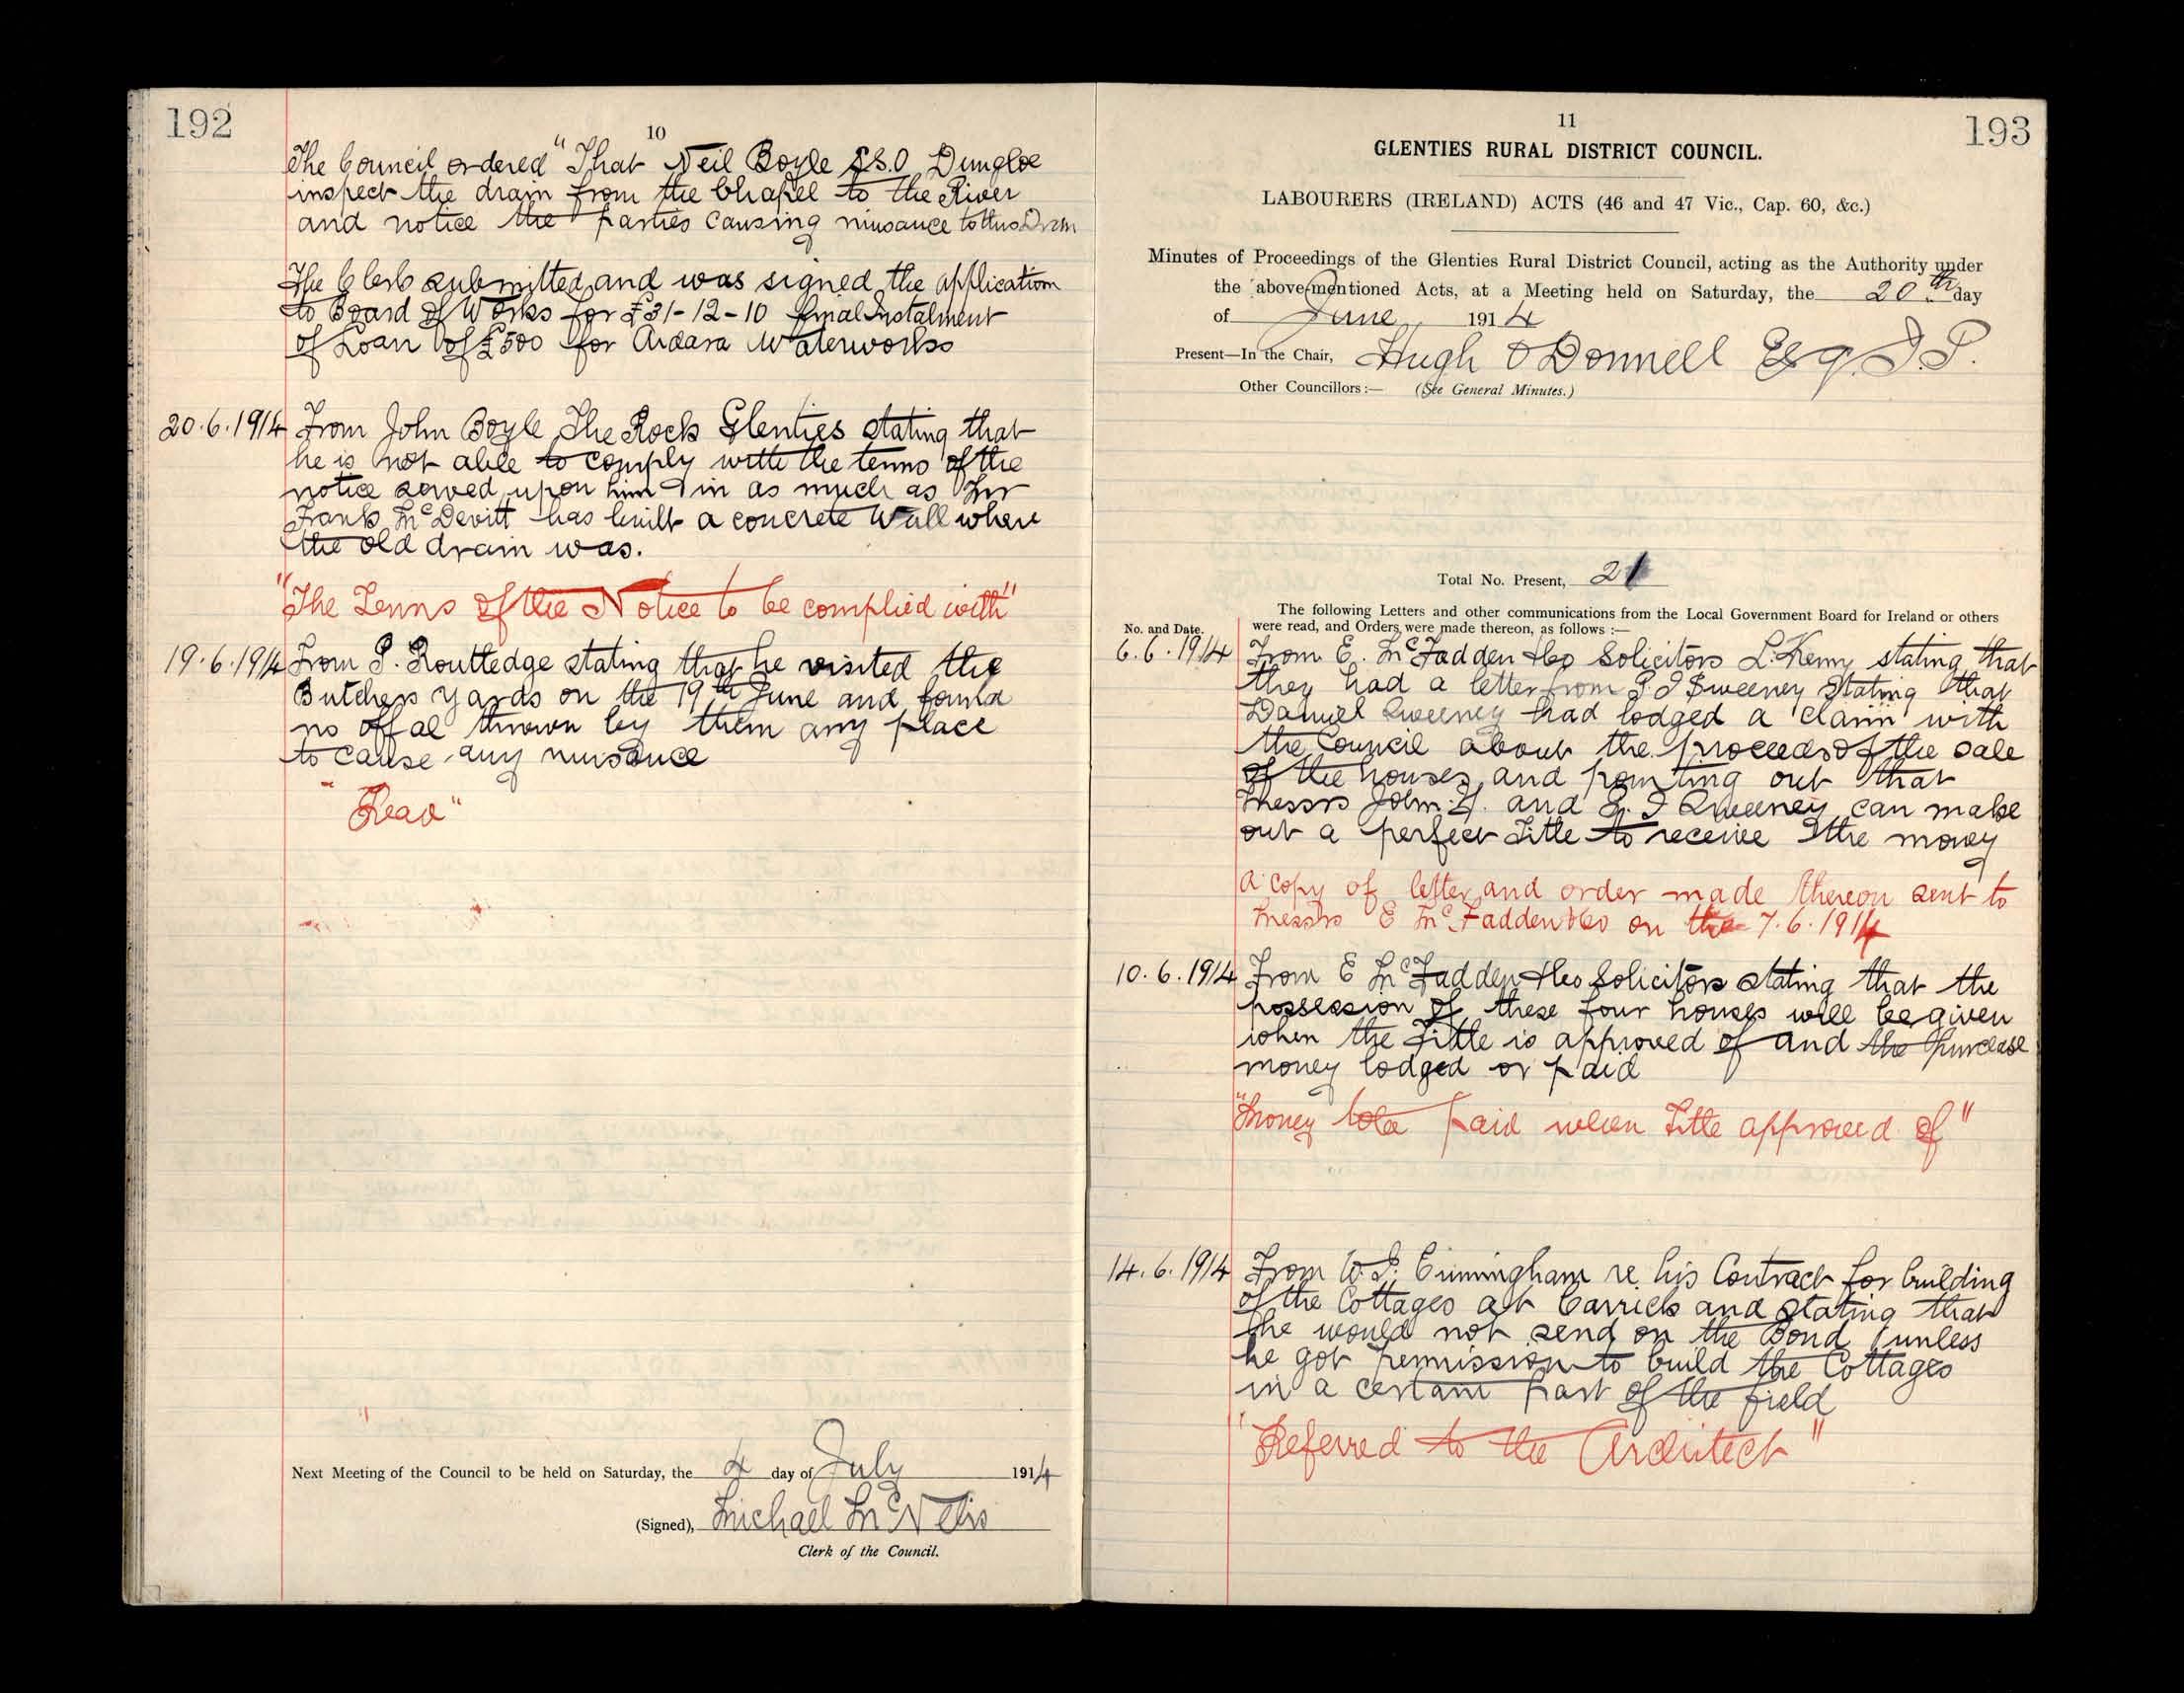 192
10
The Council ordered "That Neil Boyle S.S.O Dungloe
inspect the drain from the Chapel to the River
and notice the parties causing niusance to this Drain
The Clerk submitted and was signed the application
to Board of Works for £31-12-10 final Instalment
of Loan of £500 for Ardara Waterworks
20.6.1914 From John Boyle The Rock Glenties stating that
he is not able to comply with the terms of the
notice served upon him in as much as Mr
Frank McDevitt has built a concrete Wall where
the old drain was.
"The Terms of the Notice to be complied with"
19.6.1914 From P. Routledge stating that he visited the
Butchers Yards on the 19th June and found
no offal thrown by them any place
to cause any nuisance
"Read"
Next Meeting of the Council to be held on Saturday, the 4 day of July 1914
(Signed), Michael McNelis
Clerk of the Council.
193
11
GLENTIES RURAL DISTRICT COUNCIL.
LABOURERS (IRELAND) ACTS (46 and 47 Vic., Cap. 60, &c.)
Minutes of Proceedings of the Glenties Rural District Council, acting as the Authority under
the above-mentioned Acts, at a Meeting held on Saturday, the 20th day
of June 1914
Present—In the Chair, Hugh O'Donnell Esq. J.P.
Other Councillors:— (See General Minutes.)
Total No. Present, 21
The following Letters and other communications from the Local Government Board for Ireland or others
No. and Date. were read, and Orders were made thereon, as follows :—
6.6.1914 From E. McFadden & Co Solicitors L. Kenny stating that
they had a letter from P J Sweeney stating that
Daniel Sweeney had lodged a claim with
the Council about the proceeds of the sale
of the houses and pointing out that
Messrs John and P. J Sweeney can make
out a perfect Title to receive the money
A copy of letter and order made thereon sent to
Messrs E McFadden & Co on the 7.6.1914
10.6.1914 From E McFadden & Co Solicitors stating that the
possession of these four houses will be given
when the Title is approved of and the purchase
money lodged or paid
"Money to be paid when Title approved of"
14.6.1914 From W.J. Cunningham re his Contract for building
of the Cottages at Carrick and stating that
he would not send on the Bond unless
he got permission to build the Cottages
in a certain part of the field
"Referred to the Architect"